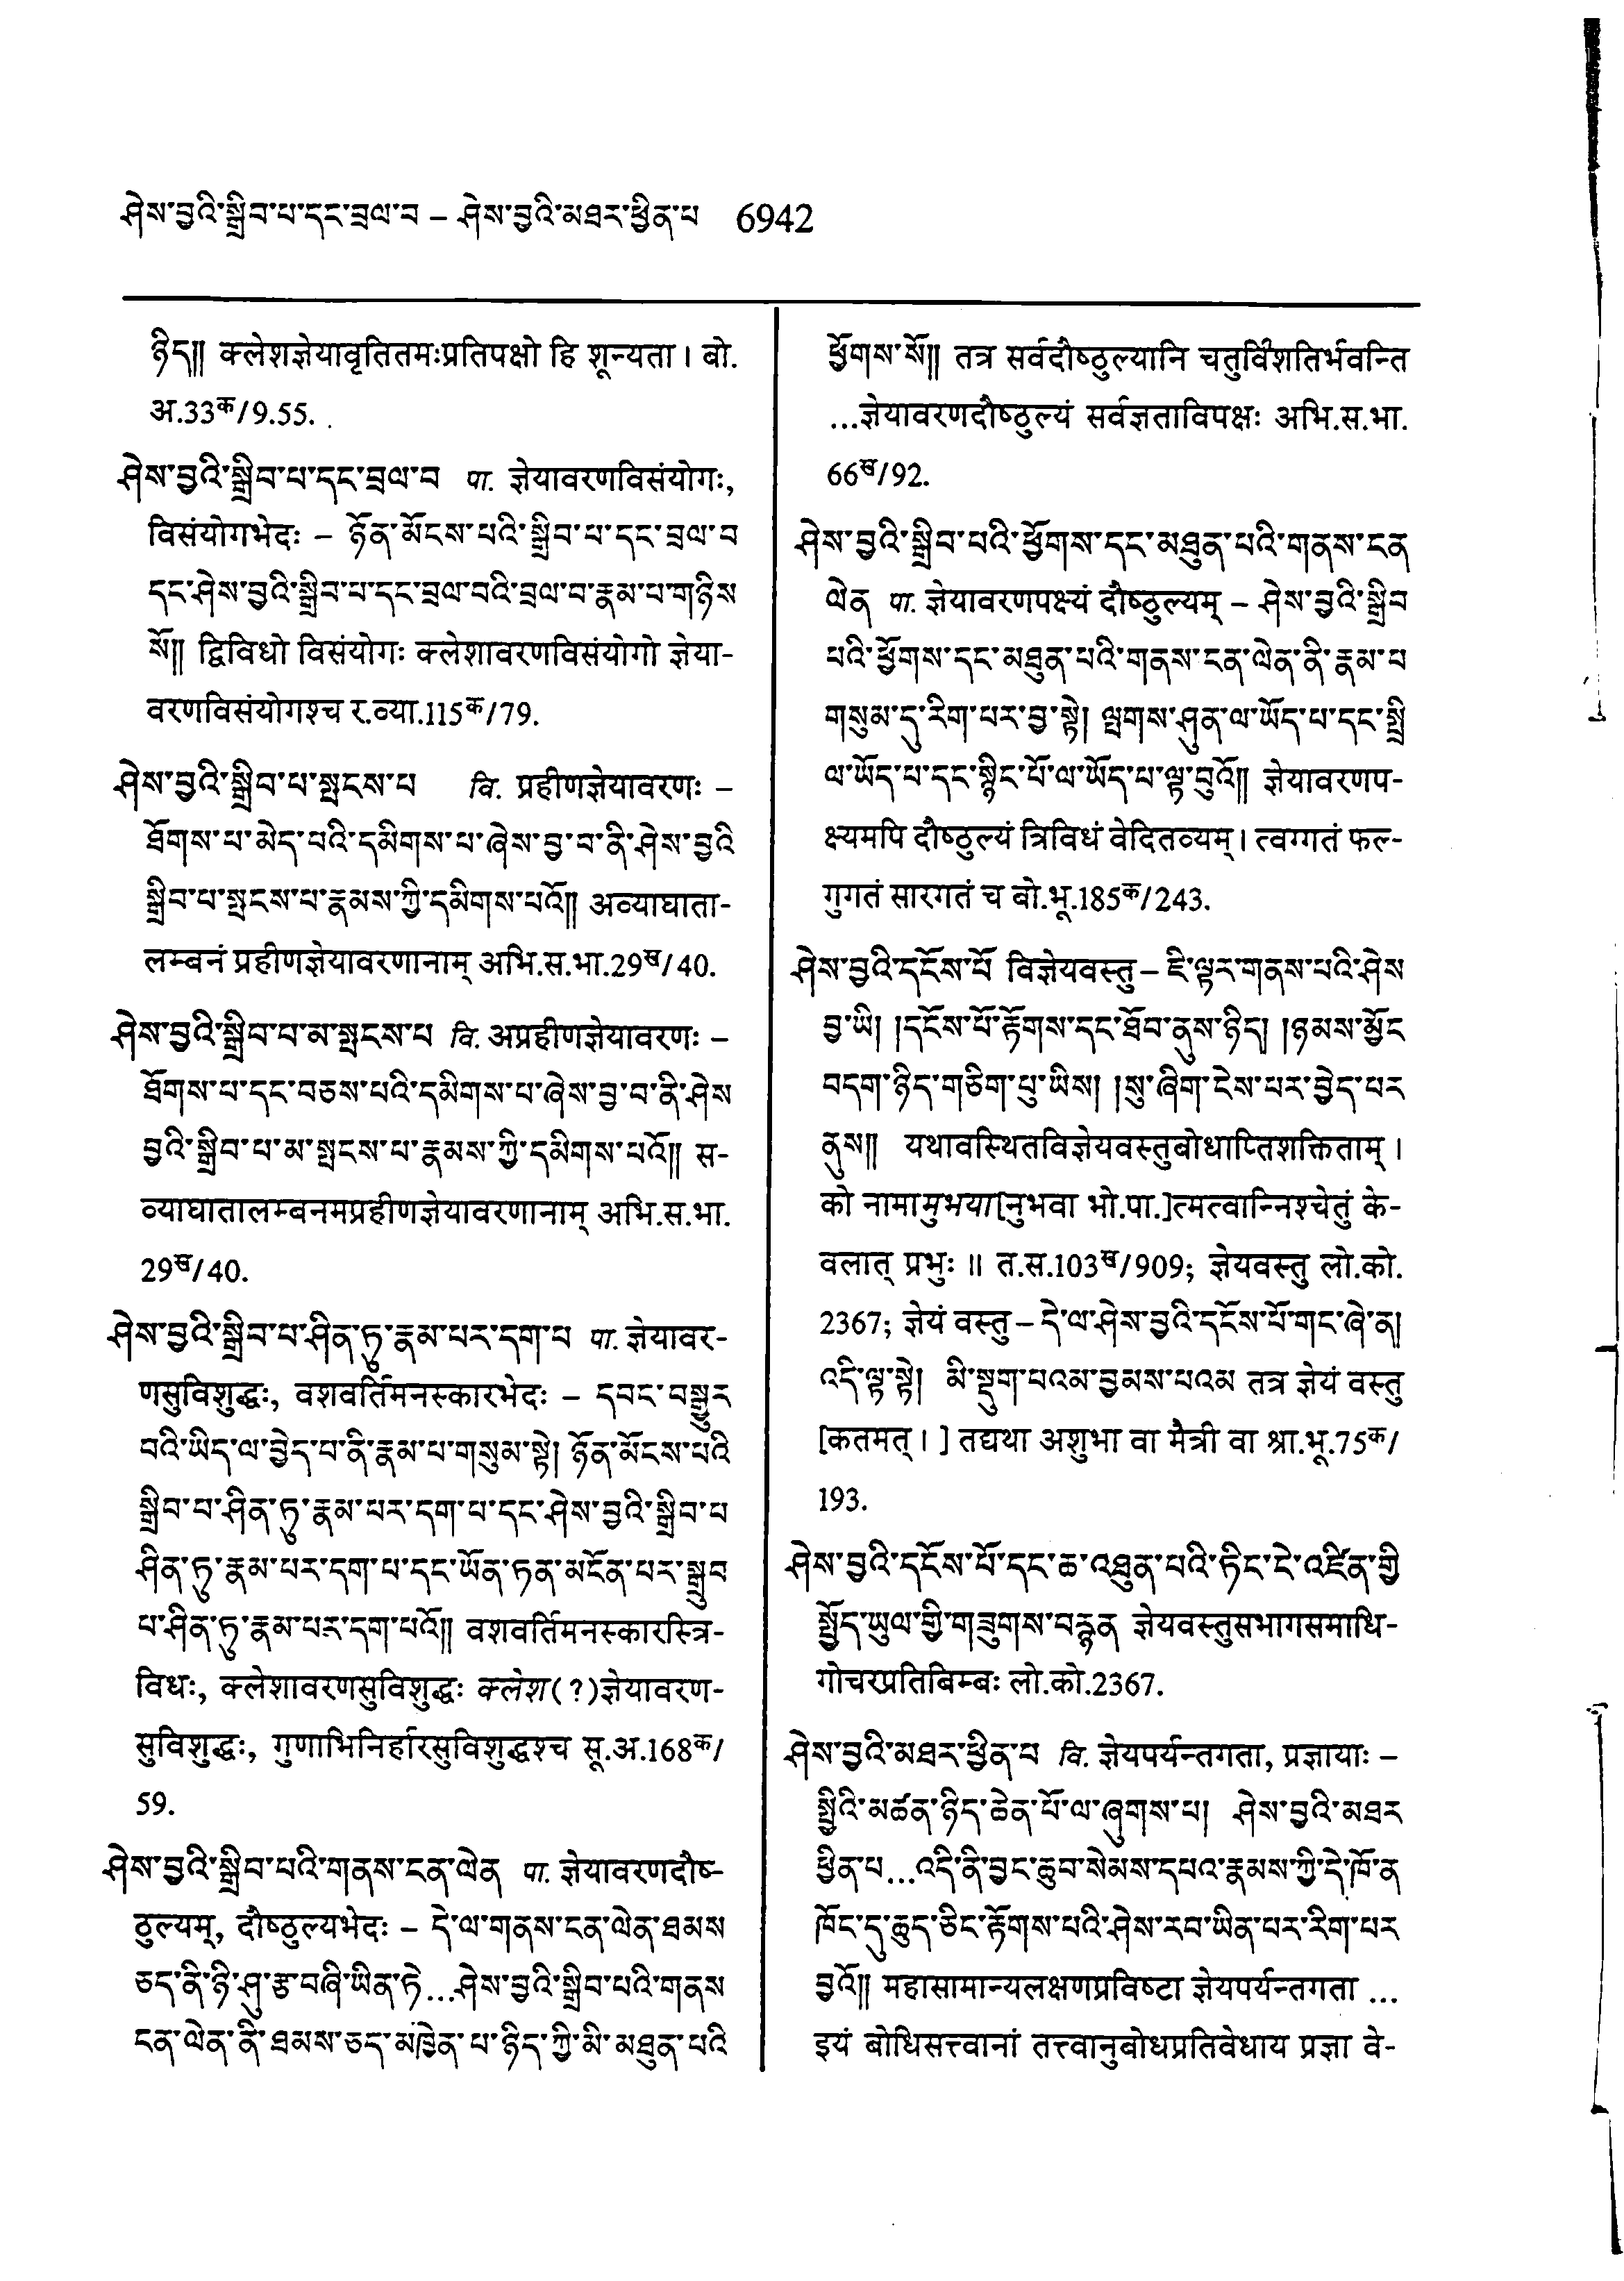 ཤེས་བྱའི་སྒྲིབ་པ་དང་བྲལ་བ – ཤེས་བྱའི་མཐར་ཕྱིན་པ 6942
ཉིད༎ क्लेशज्ञेयावृतितमःप्रतिपक्षो हि शून्यता। बो.
अ.33क/9.55.
ཤེས་བྱའི་སྒྲིབ་པ་དང་བྲལ་བ पा. ज्ञेयावरणविसंयोगः,
विसंयोगभेदः – ཉོན་མོངས་པའི་སྒྲིབ་པ་དང་བྲལ་བ
དང་ཤེས་བྱའི་སྒྲིབ་པ་དང་བྲལ་བའི་བྲལ་བ་རྣམ་པ་གཉིས
སོ༎ द्विविधो विसंयोगः क्लेशावरणविसंयोगो ज्ञेया-
वरणविसंयोगश्च र.व्या.115क/79.
ཤེས་བྱའི་སྒྲིབ་པ་སྤངས་པ वि. प्रहीणज्ञेयावरणः –
ཐོགས་པ་མེད་པའི་དམིགས་པ་ཞེས་བྱ་བ་ནི་ཤེས་བྱའི
སྒྲིབ་པ་སྤངས་པ་རྣམས་ཀྱི་དམིགས་པའོ༎ अव्याघाता-
लम्बनं प्रहीणज्ञेयावरणानाम् अभि.स.भा.29ख/40.
ཤེས་བྱའི་སྒྲིབ་པ་མ་སྤངས་པ वि. अप्रहीणज्ञेयावरणः –
ཐོགས་པ་དང་བཅས་པའི་དམིགས་པ་ཞེས་བྱ་བ་ནི་ཤེས
བྱའི་སྒྲིབ་པ་མ་སྤངས་པ་རྣམས་ཀྱི་དམིགས་པའོ༎ स-
व्याघातालम्बनमप्रहीणज्ञेयावरणानाम् अभि.स.भा.
29ख/40.
ཤེས་བྱའི་སྒྲིབ་པ་ཤིན་ཏུ་རྣམ་པར་དག་པ पा. ज्ञेयावर-
णसुविशुद्धः, वशवर्तिमनस्कारभेदः – དབང་བསྒྱུར
བའི་ཡིད་ལ་བྱེད་པ་ནི་རྣམ་པ་གསུམ་སྟེ། ཉོན་མོངས་པའི
སྒྲིབ་པ་ཤིན་ཏུ་རྣམ་པར་དག་པ་དང་ཤེས་བྱའི་སྒྲིབ་པ
ཤིན་ཏུ་རྣམ་པར་དག་པ་དང་ཡོན་ཏན་མངོན་པར་སྒྲུབ
པ་ཤིན་ཏུ་རྣམ་པར་དག་པའོ༎ वशवर्तिमनस्कारस्त्रि-
विधः, क्लेशावरणसुविशुद्धः क्लेश(?)ज्ञेयावरण-
सुविशुद्धः, गुणाभिनिर्हारसुविशुद्धश्च सू.अ.168क/
59.
ཤེས་བྱའི་སྒྲིབ་པའི་གནས་ངན་ལེན पा. ज्ञेयावरणदौष्-
ठुल्यम्, दौष्ठुल्यभेदः – དེ་ལ་གནས་ངན་ལེན་ཐམས
ཅད་ནི་ཉི་ཤུ་རྩ་བཞི་ཡིན་ཏེ...ཤེས་བྱའི་སྒྲིབ་པའི་གནས
ངན་ལེན་ནི་ཐམས་ཅད་མཁྱེན་པ་ཉིད་ཀྱི་མི་མཐུན་པའི
ཕྱོགས་སོ༎ तत्र सर्वदौष्ठुल्यानि चतुर्विंशतिर्भवन्ति
...ज्ञेयावरणदौष्ठुल्यं सर्वज्ञताविपक्षः अभि.स.भा.
66ख/92.
ཤེས་བྱའི་སྒྲིབ་པའི་ཕྱོགས་དང་མཐུན་པའི་གནས་ངན
ལེན पा. ज्ञेयावरणपक्ष्यं दौष्ठुल्यम् – ཤེས་བྱའི་སྒྲིབ
པའི་ཕྱོགས་དང་མཐུན་པའི་གནས་ངན་ལེན་ནི་རྣམ་པ
གསུམ་དུ་རིག་པར་བྱ་སྟེ། ལྤགས་ཤུན་ལ་ཡོད་པ་དང་སྤྲི
ལ་ཡོད་པ་དང་སྙིང་པོ་ལ་ཡོད་པ་ལྟ་བུའོ༎ ज्ञेयावरणप-
क्ष्यमपि दौष्ठुल्यं त्रिविधं वेदितव्यम्। त्वग्गतं फल्-
गुगतं सारगतं च बो.भू.185क/243.
ཤེས་བྱའི་དངོས་པོ विज्ञेयवस्तु – ཇི་ལྟར་གནས་པའི་ཤེས
བྱ་ཡི། །དངོས་པོ་རྟོགས་དང་ཐོབ་ནུས་ཉིད། །ཉམས་མྱོང
བདག་ཉིད་གཅིག་པུ་ཡིས། །སུ་ཞིག་ངེས་པར་བྱེད་པར
ནུས༎ यथावस्थितविज्ञेयवस्तुबोधाप्तिशक्तिताम्।
को नामामुभया[नुभवा भो.पा.]त्मत्वान्निश्चेतुं के-
वलात् प्रभुः॥ त.स.103ख/909; ज्ञेयवस्तु लो.को.
2367; ज्ञेयं वस्तु – དེ་ལ་ཤེས་བྱའི་དངོས་པོ་གང་ཞེ་ན།
འདི་ལྟ་སྟེ། མི་སྡུག་པའམ་བྱམས་པའམ तत्र ज्ञेयं वस्तु
[कतमत्।] तद्यथा अशुभा वा मैत्री वा श्रा.भू.75क/
193.
ཤེས་བྱའི་དངོས་པོ་དང་ཆ་འཐུན་པའི་ཏིང་ངེ་འཛིན་གྱི
སྤྱོད་ཡུལ་གྱི་གཟུགས་བརྙན ज्ञेयवस्तुसभागसमाधि-
गोचरप्रतिबिम्बः लो.को.2367.
ཤེས་བྱའི་མཐར་ཕྱིན་པ वि. ज्ञेयपर्यन्तगता, प्रज्ञायाः –
སྤྱིའི་མཚན་ཉིད་ཆེན་པོ་ལ་ཞུགས་པ། ཤེས་བྱའི་མཐར
ཕྱིན་པ...འདི་ནི་བྱང་ཆུབ་སེམས་དཔའ་རྣམས་ཀྱི་དེ་ཁོ་ན
ཁོང་དུ་ཆུད་ཅིང་རྟོགས་པའི་ཤེས་རབ་ཡིན་པར་རིག་པར
བྱའོ༎ महासामान्यलक्षणप्रविष्टा ज्ञेयपर्यन्तगता ...
इयं बोधिसत्त्वानां तत्त्वानुबोधप्रतिवेधाय प्रज्ञा वे-